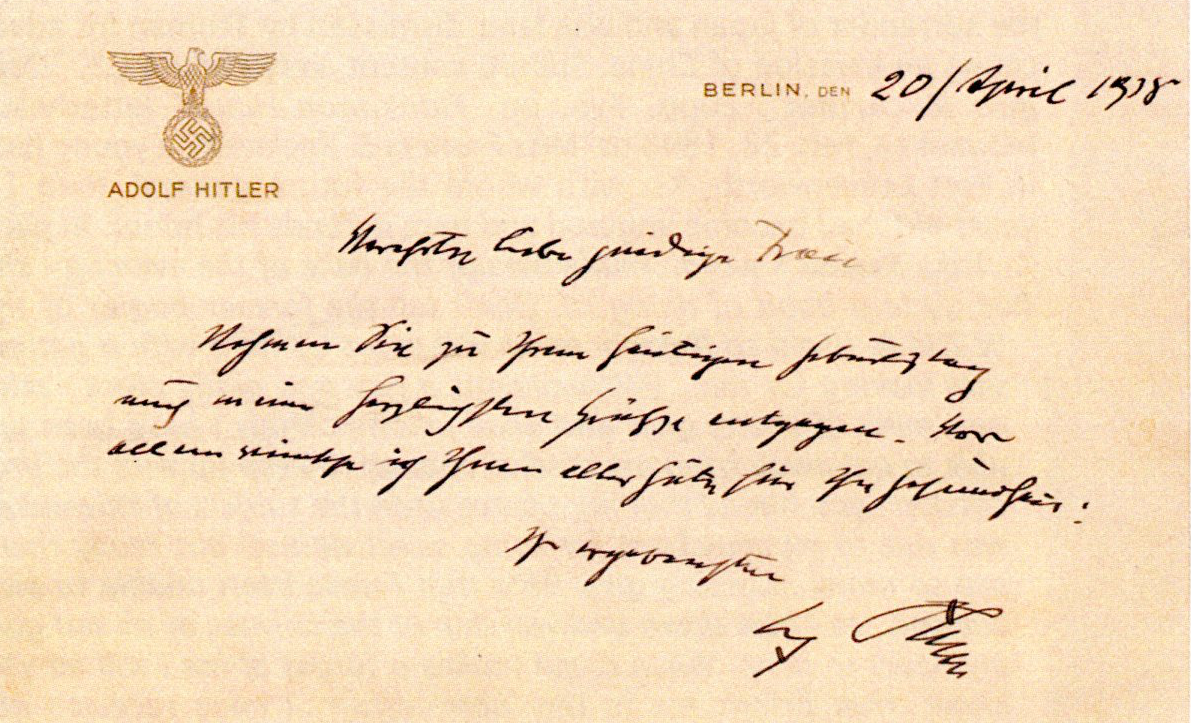 ADOLF HITLER
BERLIN, DEN 20/April 1938
Verehrte liebe gnädige Frau
Nehmen Sie zu Ihrem heutigen Geburtstag
auch meine herzlichsten Grüße entgegen. Vor
allem wünsche ich Ihnen alles Gute für Ihre Gesundheit.
Ihr ergebenster